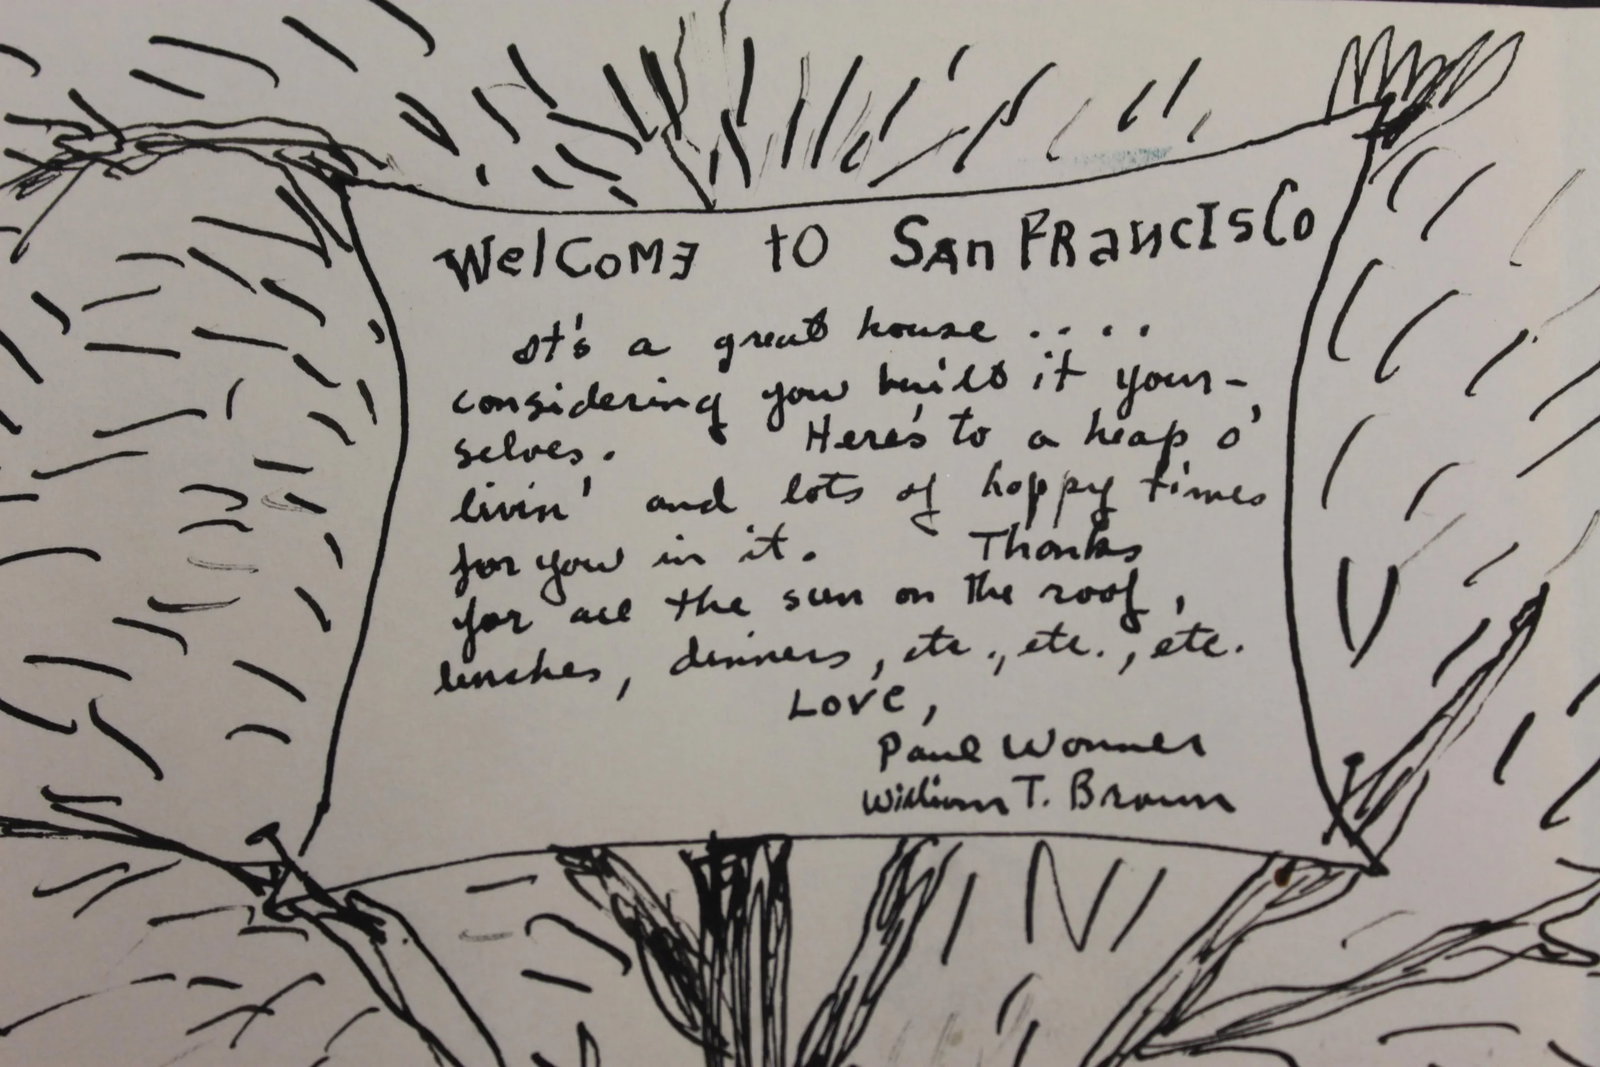 WelCoME to SAn FRancIsCo
It's a great house . . . .
considering you built it your-
selves. Here's to a heap o'
livin' and lots of happy times
for you in it. Thanks
for all the sun on the roof,
lunches, dinners, etc., etc., etc.
Love,
Paul Wonner
William T. Brown